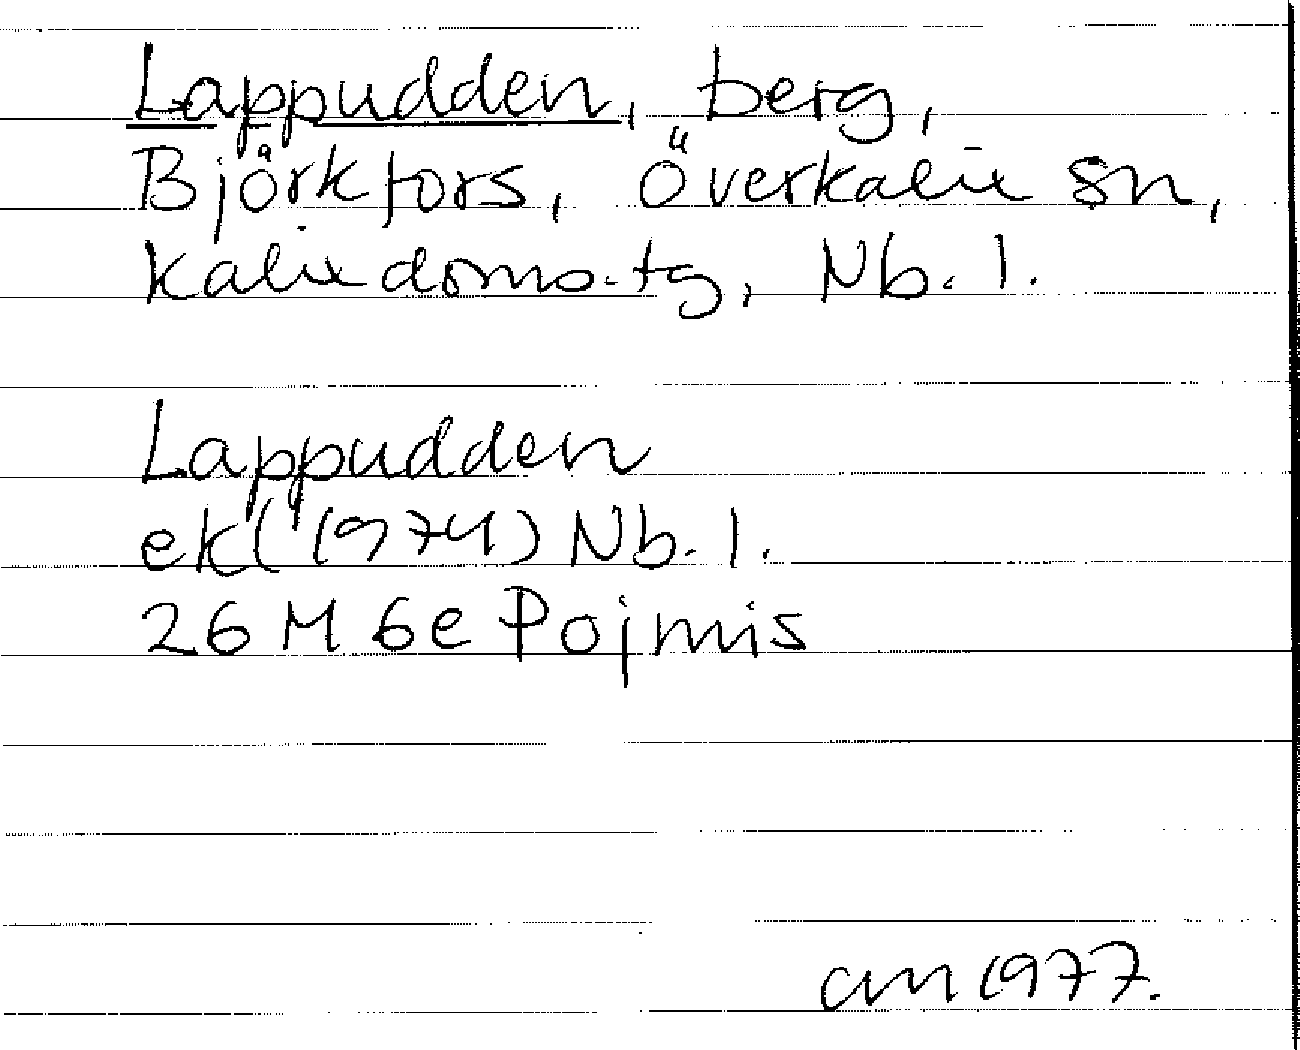 Lappudden, berg,
Björkfors, Överkalix sn,
Kalix doms.tg, Nb. l.
Lappudden
ek (1974) Nb. l.
26 M 6e Pojmis
am 1977.